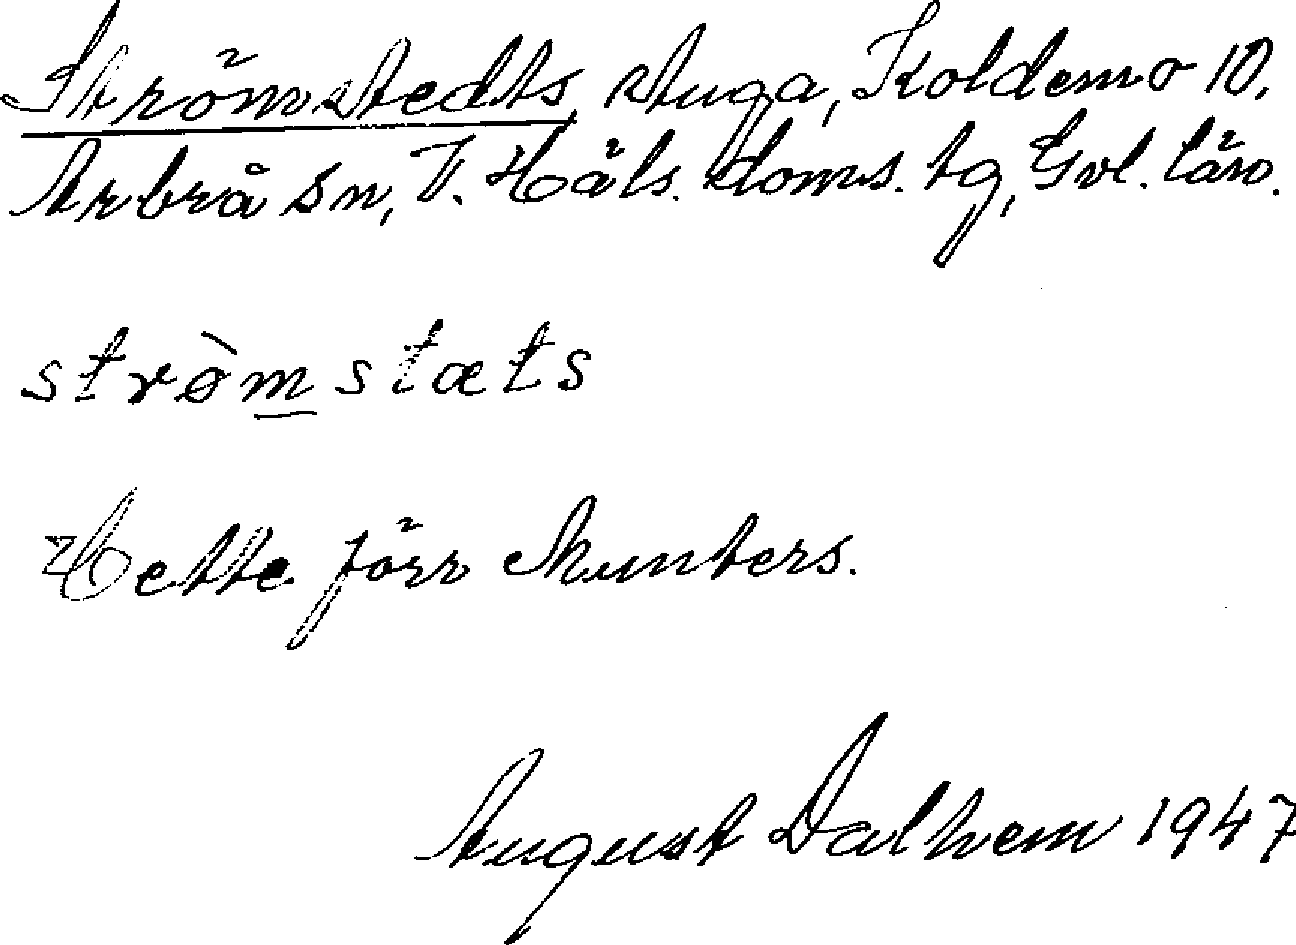 Strömstedts, stuga, Koldemo 10,
Arbrå sn, V. Häls. doms. tg, Gvl. län.
strø̀mstæts
Hette förr Munters.
August Dalhem 1947